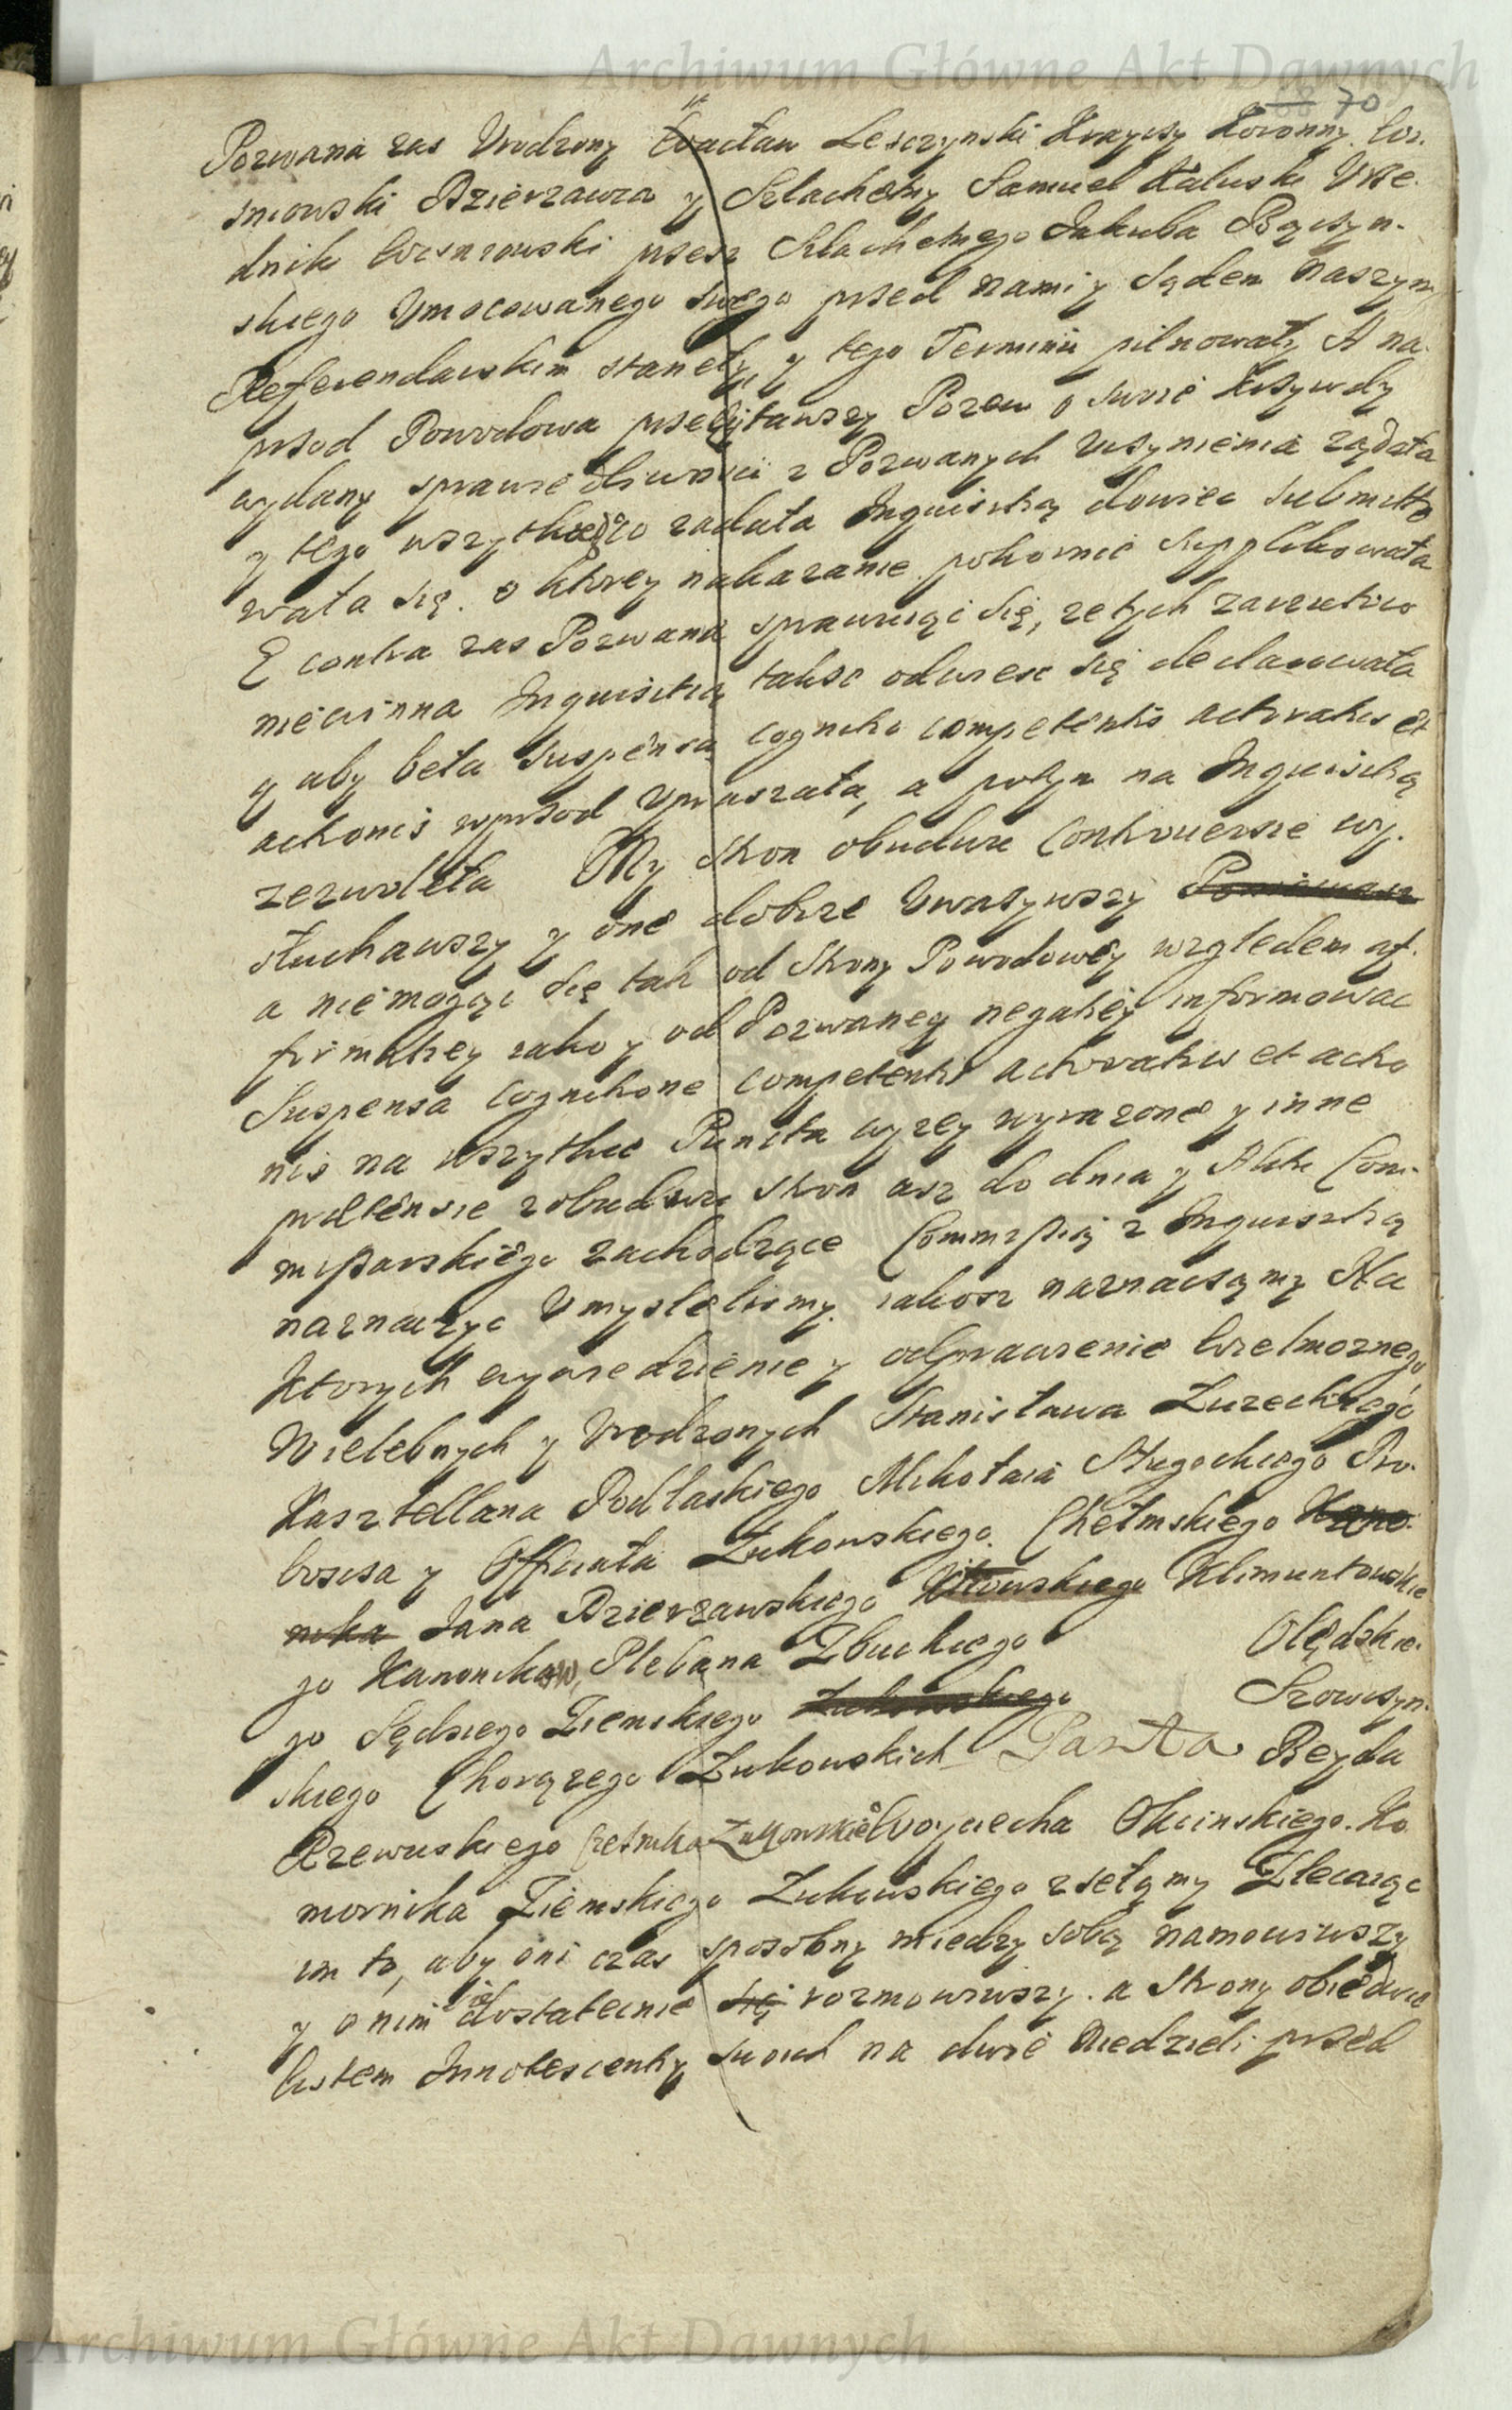 Archiwum Główne Akt Dawnych
68 70
Pozwana zas Urodzony Wacław Lesczynski Krayczy Koronny. Wis.
sniowski Dzierzawca y Szlachetny Samuel Kaluski Urze.
dnik Wisniowski przesz Szlachetnego Jakuba
skiego Umocowanego swego przed nami y Sądem Naszym
Referendarskim stanęły y tego Terminu pilnowały A na.
przod Powodowa przeczytawszy Pozew o swoie krzywdy
wydany sprawiedliwosci z Pozwanych uczynienia ządała
y tego wszytkiego co zadała Inquisitią dowiec submitto
wała się. o ktorey nakazanie pokornie supplikowała
E contra zas Pozwana sprawuiąc się, ze tych zarzutow
niewinna Inquisitią takze odwiesc się declarowała
y aby beła suspensa cognitio competentis actoratus et
actionis wprzod upraszała, a potym na Inquisitią
zezwoleła My stron obudwu Controuersie wy.
słuchawszy y one dobrze uwazywszy Poniewasz
a niemogąc się tak od strony Powodowey względem af.
firmatiey iako y od Pozwaney negatiey informowac
Suspensa cognitione competentis actoratus et actio
nis na wszytkie Puncta wyzey wyrazone y inne
praetensie z obudwu stron asz do dnia y Aktu Com.
missarskiego zachodzące Commissią z Inquisitią
naznaczyc umyslelismy. iakosz naznaczamy Na
ktorych wywiedzienie y odprawienie Wielmoznego,
Wielebnych y Urodzonych Stanisława Zureckiego
Kasztellana Podlaskiego Mikołaia Pro.
boscza y Officiała Łukowskiego. Chełmskiego Kano.
nika Jana Dzierzawskiego Klimuntowskie
go Kanonikow, Plebana Zbuckiego Olędskie.
go Sędziego Ziemskiego Łukowskiego
skiego Chorązego Łukowskich
Rzewuskiego Czesnika Łukowskie Woyciecha Okninskiego. Ko
mornika Ziemskiego Łukowskiego zsełamy Zlecaiąc
im to, aby oni czas sposobny miedzy sobą namowiwszy
y o nim dostatecznie się rozmowiwszy. a strony obiedwie
listem Innotescenty swoich na dwie Niedzieli przed
Archiwum Główne Akt Dawnych